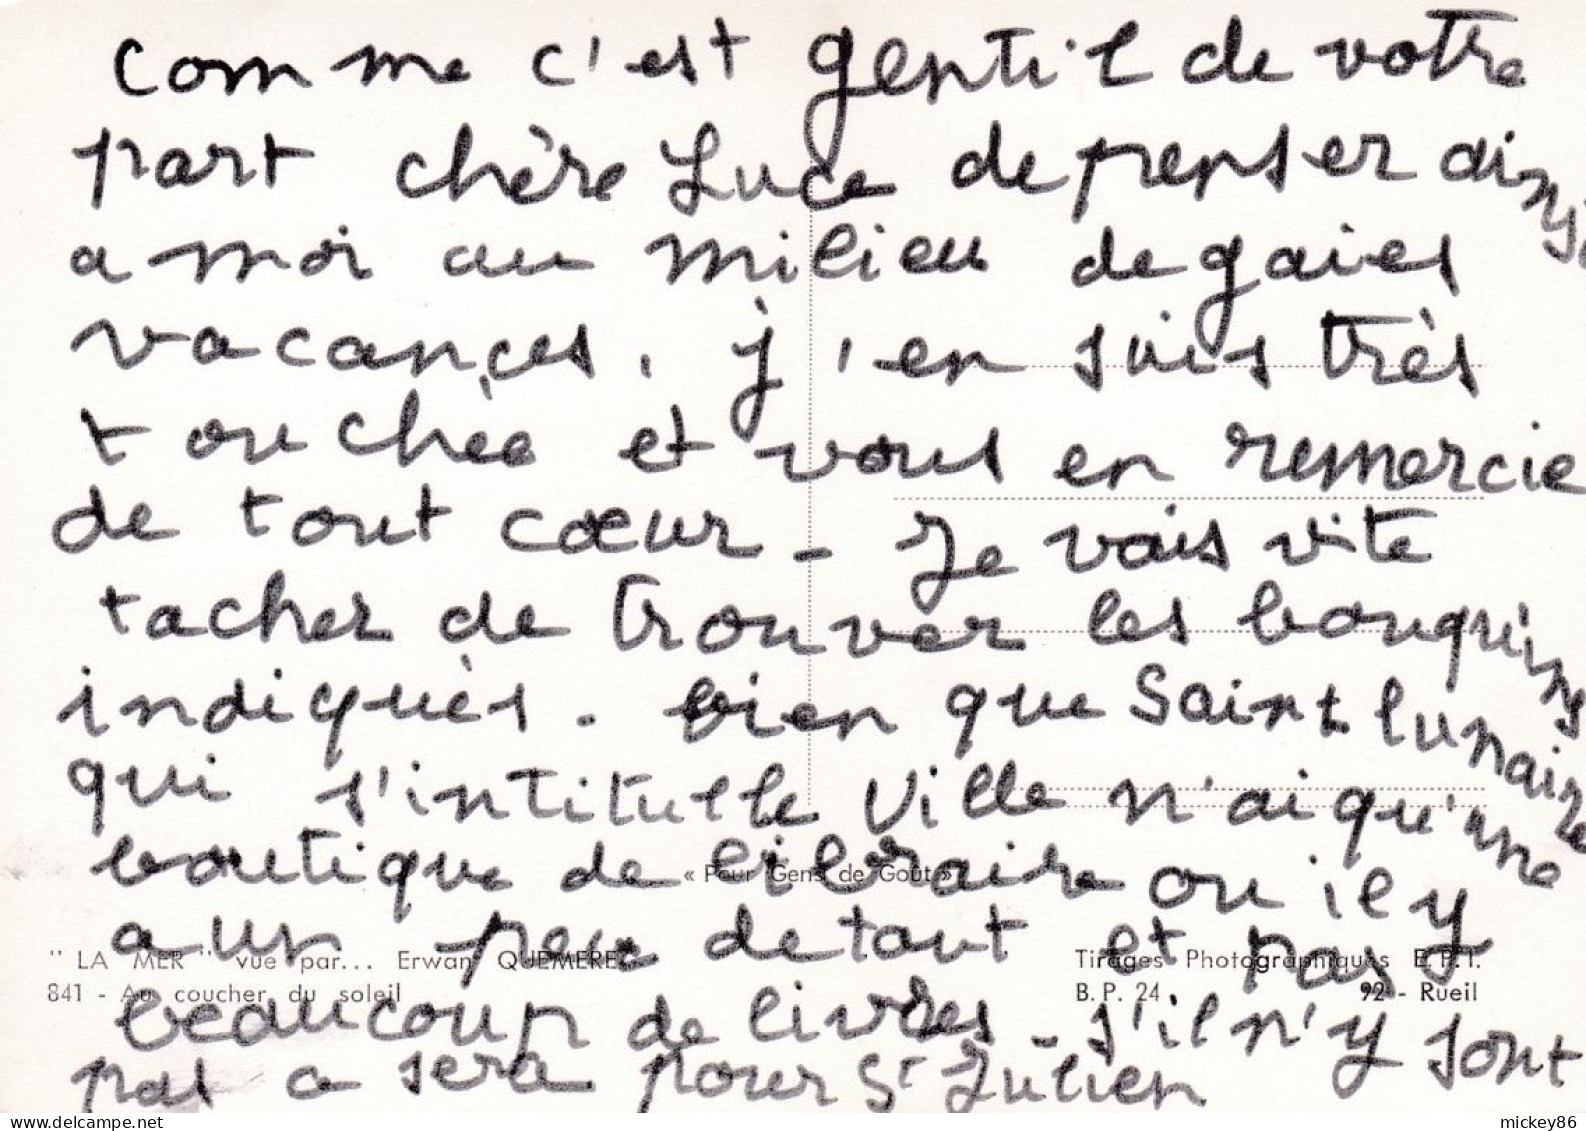 Comme c'est gentil de votre
part chère Luce de penser ainsi
a moi au milieu de gaies
vacances, j'en suis très
touchée et vous en remercie
de tout cœur - Je vais vite
tacher de trouver les bouquins
indiqués. bien que Saint lunaire
qui s'intitulle Ville n'ai qu'une
boutique de libraire ou il y
« Pour Gens de Goût »
a un peu de tout et pas
" LA MER " vue par... Erwan QUEMERE Tirages Photographiques E.P.I.
841 - Au coucher du soleil B.P. 24 92 - Rueil
beaucoup de livres - s'il n'y sont
pas a sera pour St Julien
delcampe.net
mickey86